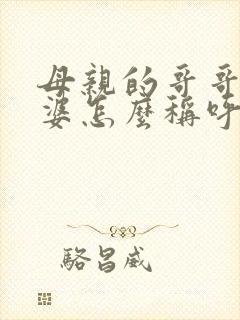 母親的哥哥
婆怎麼稱呼
駱昌威